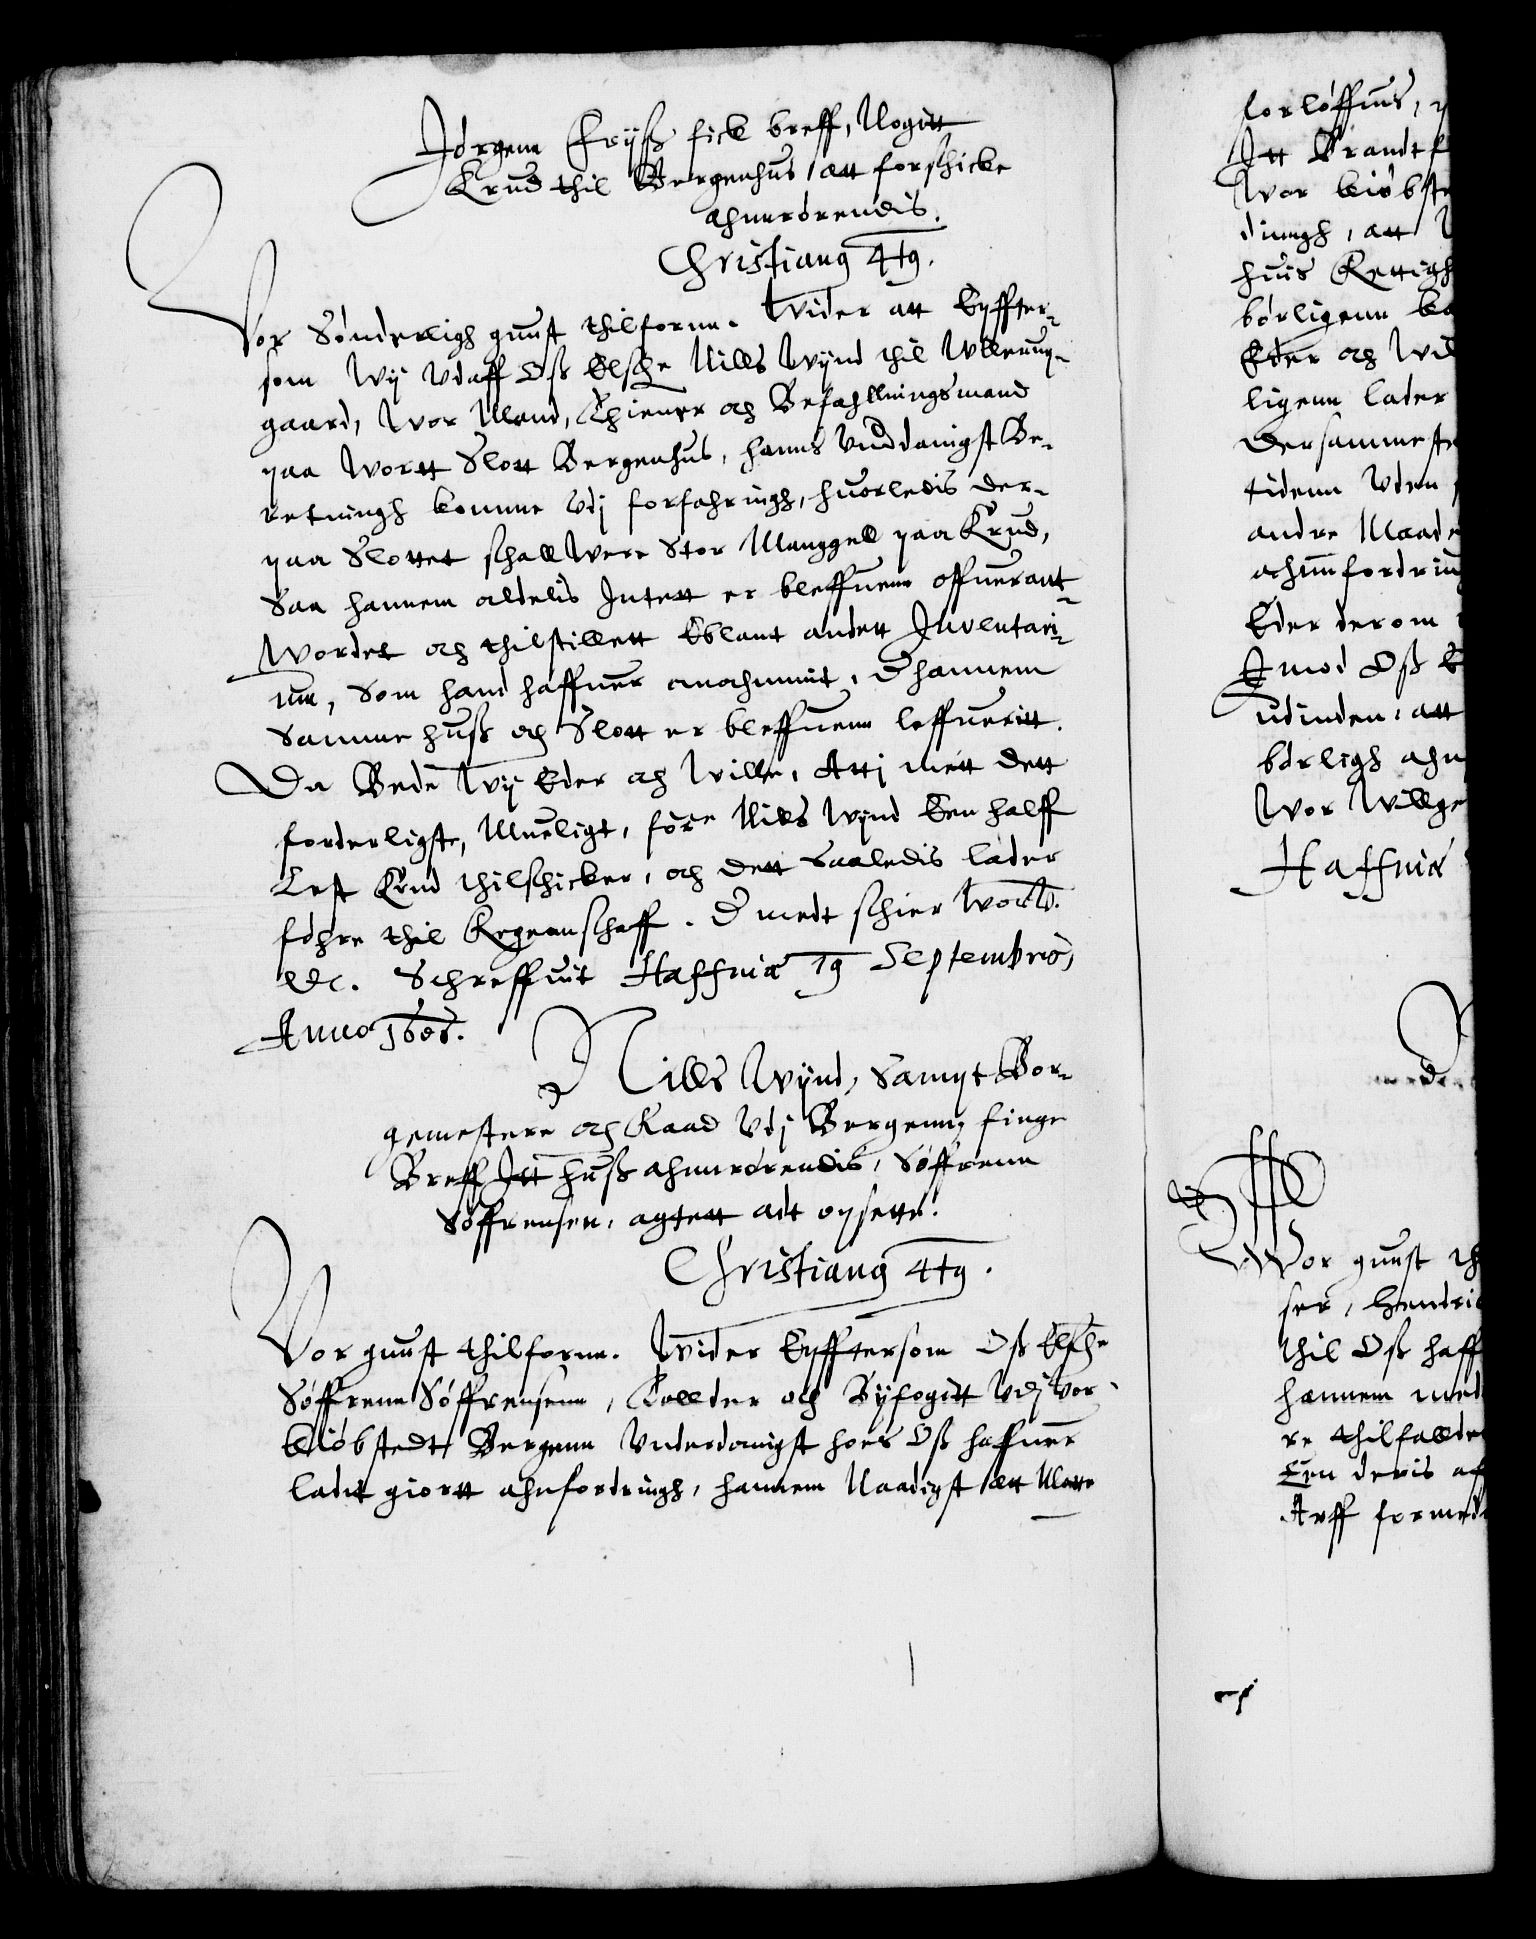 Jørgenn Fryss fick breff, Nogitt
Krud thil Bergenhus att forschicke
ahnrørendis.
Christianus 4tus.
Vor Sønderligh gunst thilforne. Wider att Eyffter-
som Wij Vdaff Oss Elsche Nills Wijnd thil Wllerup-
gaard, Wor Mand, Thienere och Befahllningsmand
paa Wortt Slott Bergenhus, hanns Vnddanigst Be-
retningh komme Vdj forfahringh, huorledis der-
paa Slottet schall Were Stor Manggell paa Krud,
Saa hannem aldelis Intett er bleffuenn offuerant-
Wordet och thilstillett Eblant andett Inventari-
um, Som hand haffuer anahmmit, Dhannem
Samme huss och Slott er bleffuenn leffueritt.
Da Bede Wij Eder och Wille, Attj mett dett
forderligste, Mueligt, føre Nills Wijnd Een halff
Lest Krud thilschicker, och dett Saaledis lader
føhre thil Regennschaff. D medt schier Wor W.
&c. Schreffuit Haffniæ 19 Septembris,
Anno 1606.
Nills Wijnd, Sampt Bor-
gemestere och Raad Vdj Bergenn, finge
Breff Itt huss ahnrørendis, Søffrenn
Søffrensen, agtett att opsette.
Christianus 4tus.
Vor gunst thilforne. Wider Eyfftersom Oss Elsche
Søffrenn Søffrensenn, Tollder och Byfogitt Vdj Vor
kiøbstedt Bergenn Vnderdanigst hoes Oss haffuer
ladit giortt ahnfordringh, hannem Naadigst att Motte
forløffuis,
Itt Brandt
Wor kiøbste
dinngh, att
huis Rettigh
børligenn
Eder och Wil
ligenn lader
Dersammeste
tidenn Vden
andre Maade
ahnnfordrin
Eder derom
Imod Oss
udinden, att
børligh ahn
Wor Willge
Haffniæ
Wor gunst th
ser, Hendri
thil Oss haff
hannem med
re thilfalde
Een deris af
Arff formed